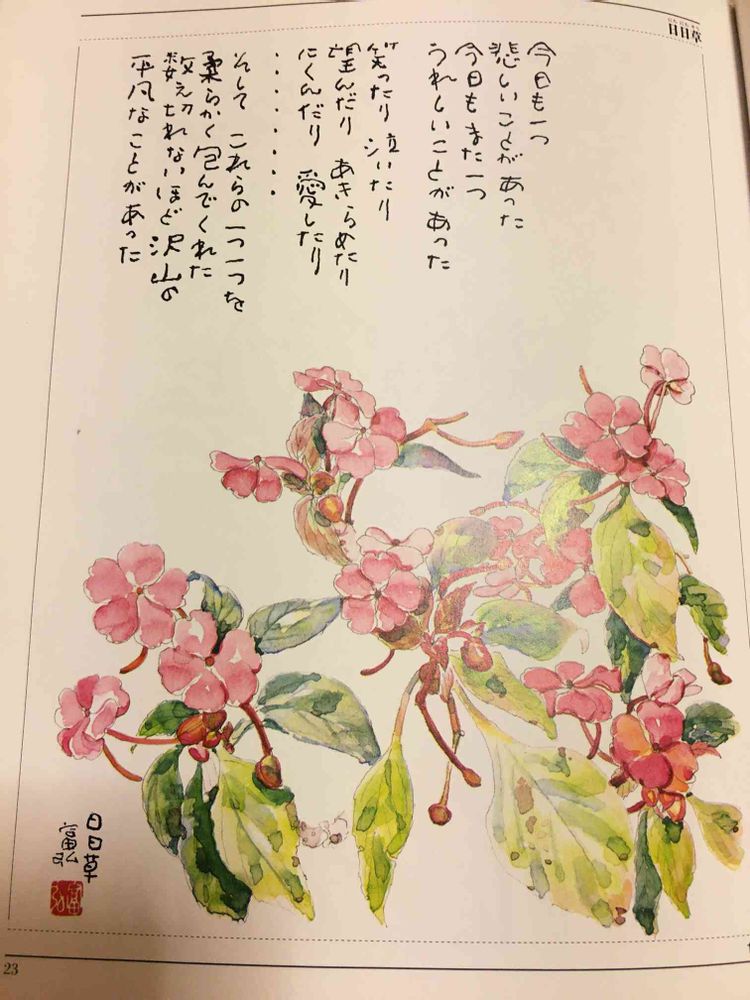 にちにちそう
日日草
今日も一つ
悲しいことがあった
今日もまた一つ
うれしいことがあった
笑ったり 泣いたり
望んだり あきらめたり
にくんだり 愛したり
・・・・・・・
そして これらの一つ一つを
柔らかく包んでくれた
数え切れないほど沢山の
平凡なことがあった
日日草
富弘
23